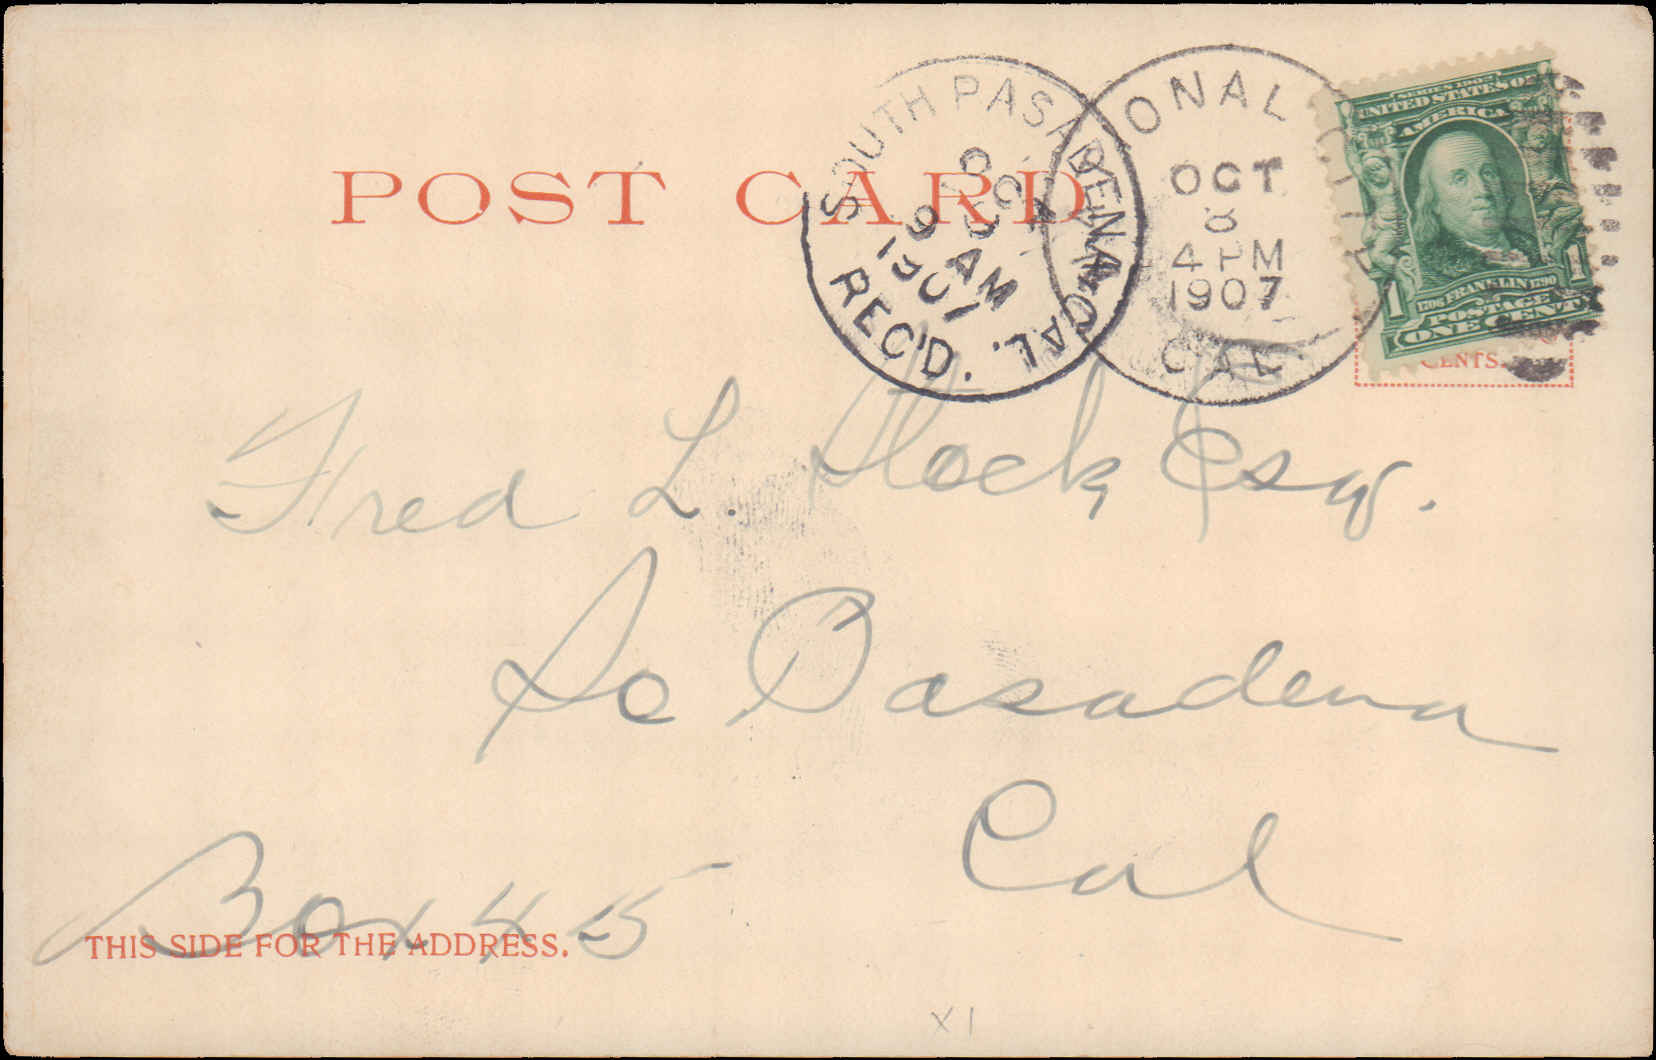 POST CARD
SOUTH PASADENA, CAL.
OCT
9
9 AM
1907
REC'D.
NATIONAL CITY
OCT
8
4 PM
1907
CAL
SERIES 1902
UNITED STATES OF
AMERICA
1706 FRANKLIN 1790
POSTAGE
1 ONE CENT 1
CENTS.
Fred L. Hock Esq.
So Pasadena
Cal
Box 45
THIS SIDE FOR THE ADDRESS.
X1